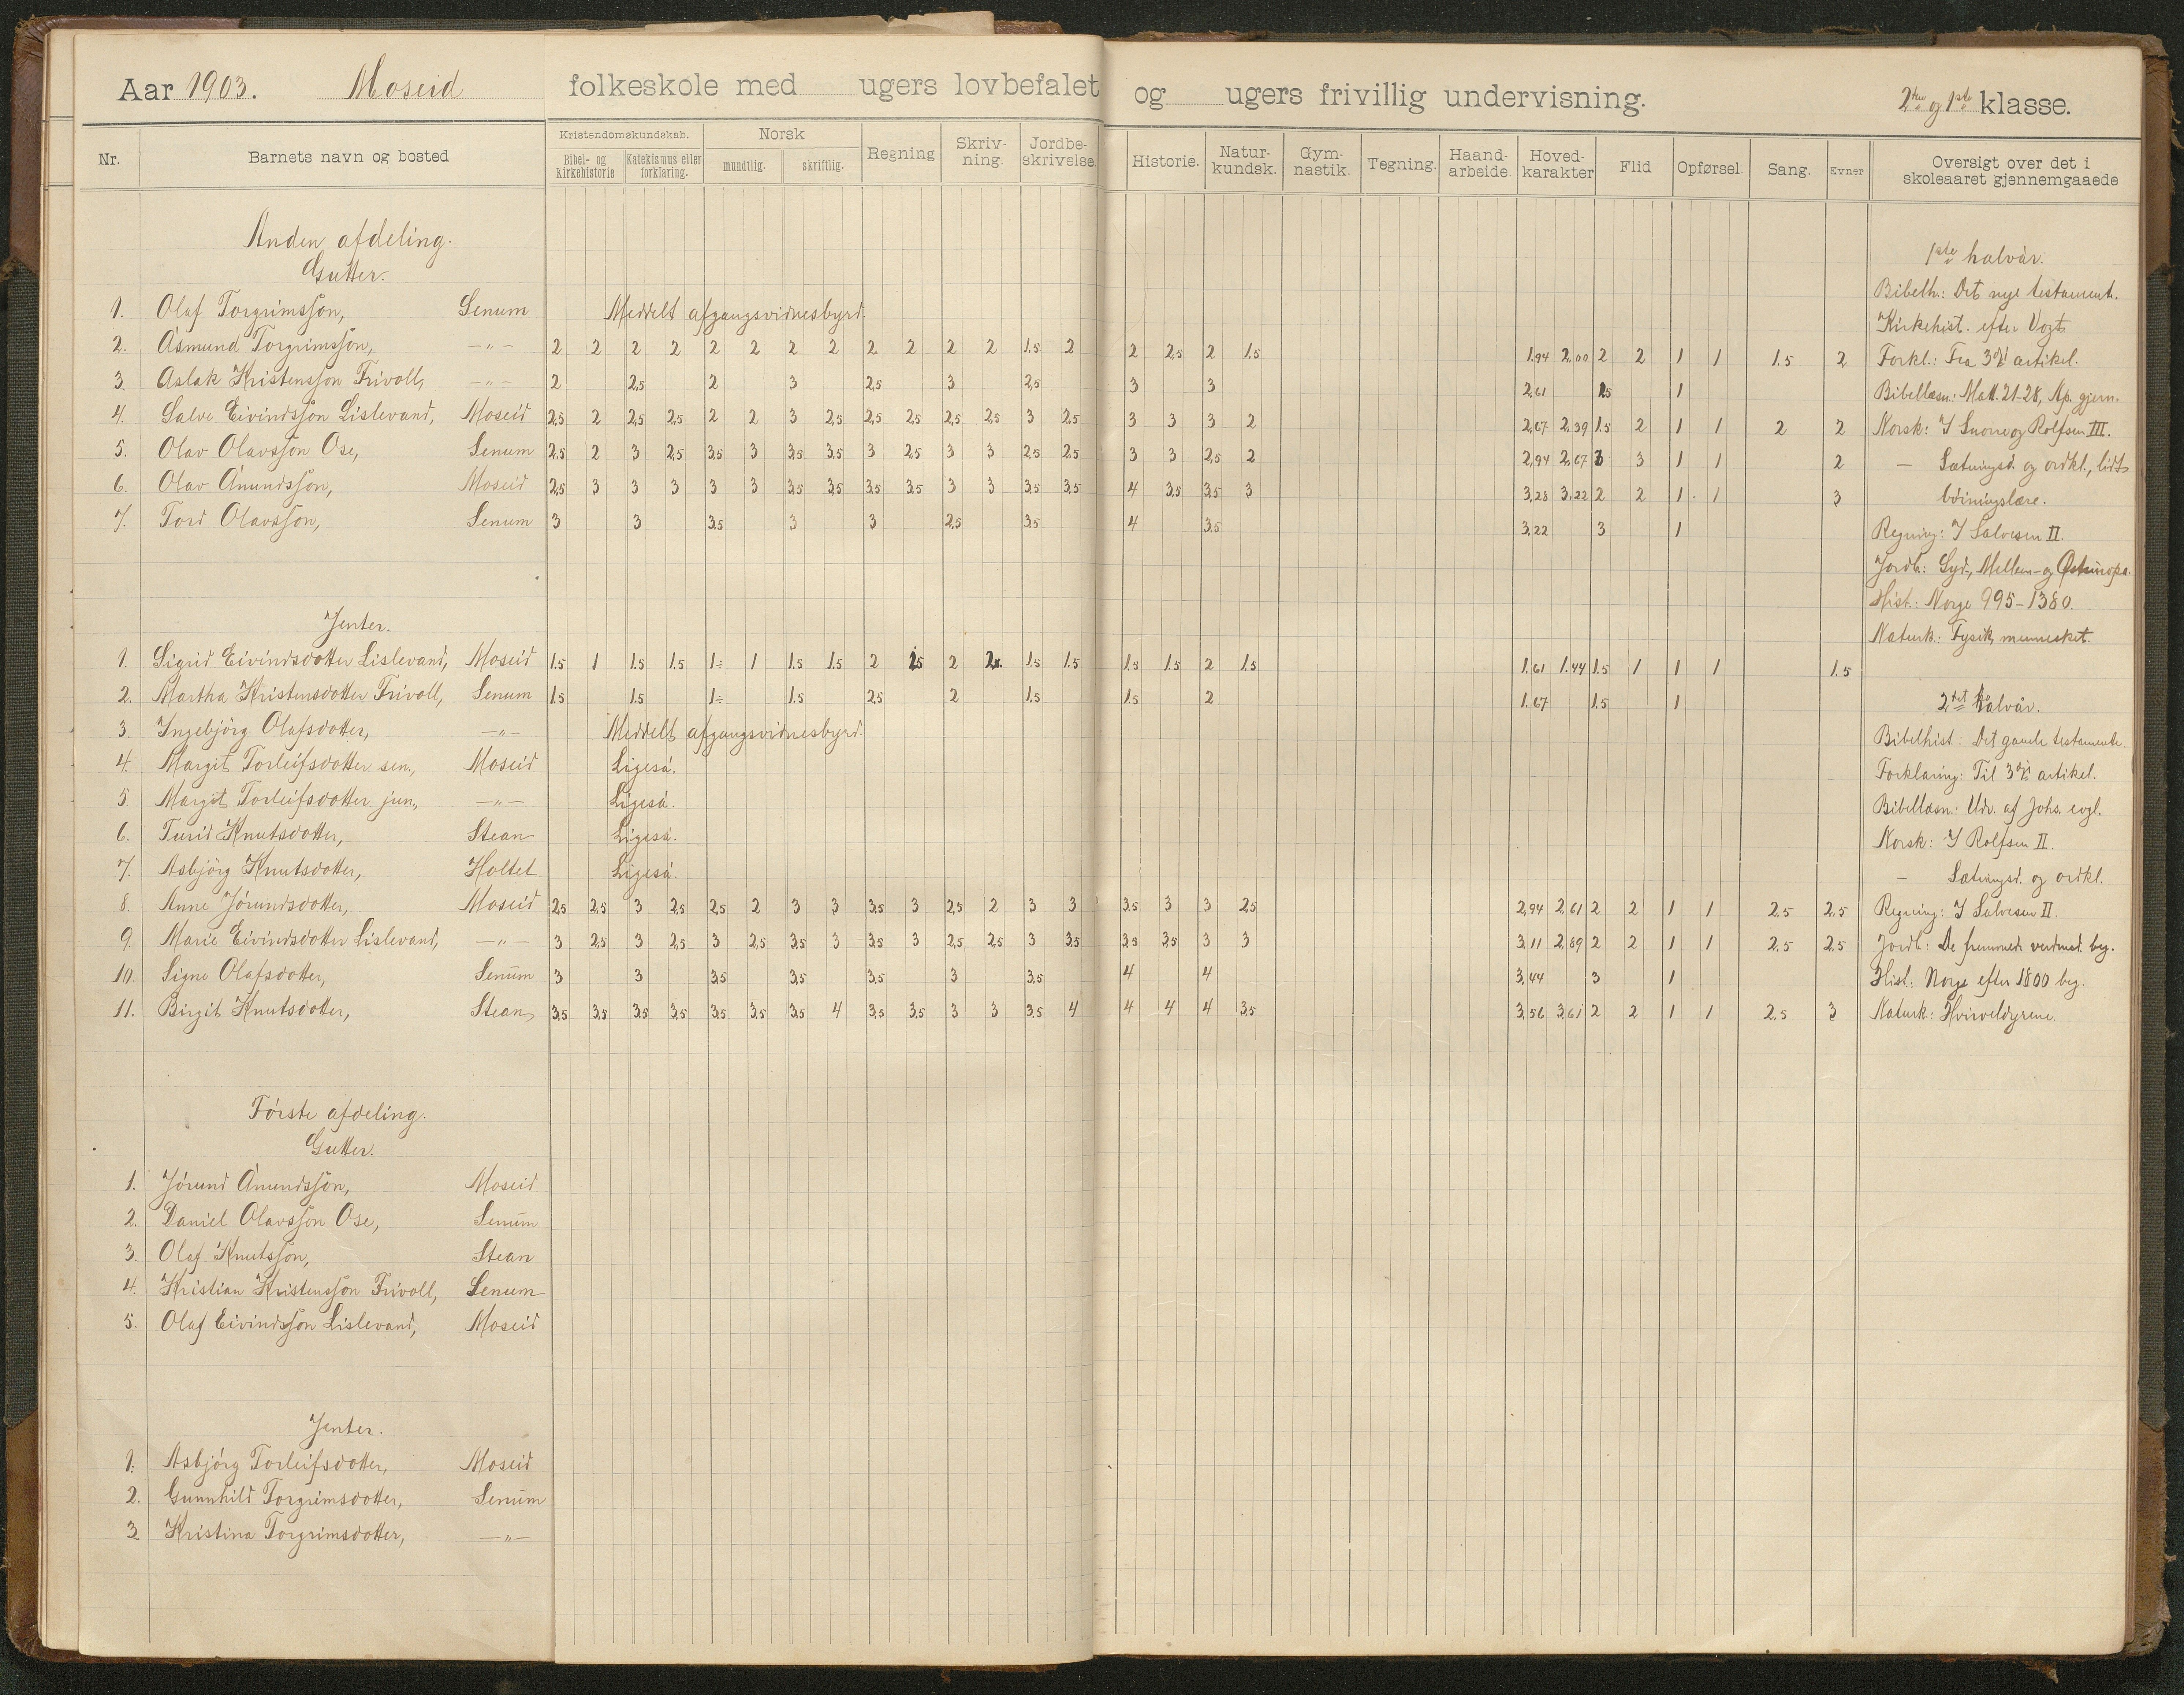 Aar 1903. Moseid folkeskole med ugers lovbefalet og ugers frivillig undervisning. 2den og 1ste klasse.
Nr. Barnets navn og bosted Kristendomskundskab. Bibel- og kirkehistorie Katekismus eller forklaring. Norsk mundtlig. skriftlig. Regning Skriv-ning. Jordbe-skrivelse. Historie. Natur-kundsk. Gym-nastik. Tegning. Haand-arbeide. Hoved-karakter Flid Opførsel. Sang. Evner Oversigt over det i skoleaaret gjennemgaaede
Anden afdeling.
Gutter.
1. Olaf Torgrimsson, Senum Meddelt afgangsvidnesbyrd.
2. Åsmund Torgrimsson, —„— 2 2 2 2 2 2 2 2 2 2 2 2 1.5 2 2 2,5 2 1.5 1.94 2.00 2 2 1 1 1.5 2
3. Aslak Kristensson Frivoll, —„— 2 2,5 2 3 2,5 3 2,5 3 3 2,61 2,5 1
4. Salve Eivindsson Lislevand, Moseid 2,5 2 2,5 2,5 2 2 3 2,5 2,5 2,5 2,5 2,5 3 2,5 3 3 3 2 2,67 2,39 1.5 2 1 1 2 2
5. Olav Olavsson Ose, Senum 2,5 2 3 2,5 3,5 3 3,5 3,5 3 2,5 3 3 2,5 2,5 3 3 2,5 2 2,94 2,67 3 3 1 1 2
6. Olav Ånundsson, Moseid 2,5 3 3 3 3 3 3,5 3,5 3,5 3,5 3 3 3,5 3,5 4 3,5 3,5 3 3,28 3,22 2 2 1 1 3
7. Tord Olavsson, Senum 3 3 3,5 3 3 2,5 3,5 4 3,5 3,22 3 1
Jenter.
1. Sigrid Eivindsdotter Lislevand, Moseid 1.5 1 1.5 1.5 1÷ 1 1.5 1.5 2 2 1.5 1.5 1.5 1.5 2 1.5 1.61 1.44 1.5 1 1 1 1.5
2. Martha Kristensdotter Frivoll, Senum 1.5 1.5 1÷ 1.5 2,5 2 1.5 1.5 2 1.67 1.5 1
3. Ingebjörg Olafsdotter, —„— Meddelt afgangsvidnesbyrd.
4. Margit Torleifsdotter sen., Moseid Ligeså.
5. Margit Torleifsdotter jun., —„— Ligeså.
6. Turid Knutsdotter, Stean Ligeså.
7. Asbjörg Knutsdotter, Holtet Ligeså.
8. Anne Jörundsdotter, Moseid 2,5 2,5 3 2,5 2,5 2 3 3 3,5 3 2,5 2 3 3 3.5 3 3 2,5 2,94 2,61 2 2 1 1 2.5 2,5
9. Marie Eivindsdotter Lislevand, —„— 3 2,5 3 2,5 3 2,5 3,5 3 3,5 3 2,5 2,5 3 3,5 3,5 3,5 3 3 3,11 2,89 2 2 1 1 2,5 2,5
10. Signe Olafsdotter, Senum 3 3 3,5 3,5 3,5 3 3,5 4 4 3,44 3 1
11. Birgit Knutsdotter, Stean 3,5 3,5 3,5 3,5 3,5 3,5 3,5 4 3,5 3,5 3 3 3,5 4 4 4 4 3,5 3,56 3,61 2 2 1 1 2,5 3
Förste afdeling.
Gutter.
1. Jörund Ånundsson, Moseid
2. Daniel Olavsson Ose, Senum
3. Olaf Knutsson, Stean
4. Kristian Kristensson Frivoll, Senum
5. Olaf Eivindsson Lislevand, Moseid
Jenter.
1. Asbjörg Torleifsdotter, Moseid
2. Gunnhild Torgrimsdotter, Senum
3. Kristina Torgrimsdotter, —„—
1ste halvår.
Bibelh.: Det nye testament.
Kirkehist. efter Vogt
Forkl.: Fra 3die artikel.
Bibellæsn.: Matt. 21-28, Ap. gjern.
Norsk: I Snorre og Rolfsen III.
— Sætningsd. og ordkl., lidt
böiningslære.
Regning: I Salvesen II.
Jordb.: Syd-, Mellem- og Östeuropa.
Hist.: Norge 995-1380.
Naturk.: Fysik, mennesket.
2det halvår.
Bibelhist.: Det gamle testamente.
Forklaring: Til 3die artikel.
Bibellæsn.: Udv. af Johs. evgl.
Norsk: I Rolfsen II.
— Sætningsd. og ordkl.
Regning: I Salvesen II.
Jordb.: De fremmede verdensd. beg.
Hist.: Norge efter 1800 beg.
Naturk.: Hvirveldyrene.